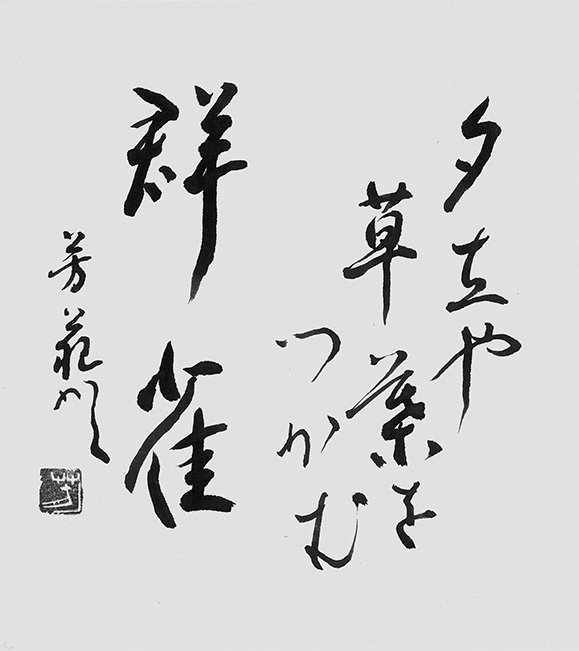 夕立や
草葉を
つかむ
群雀
芳